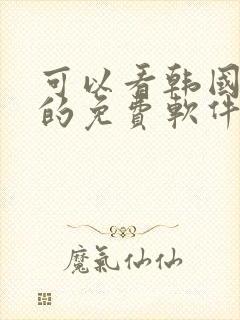 可以看韩國
的免費軟件
魔氣仙仙